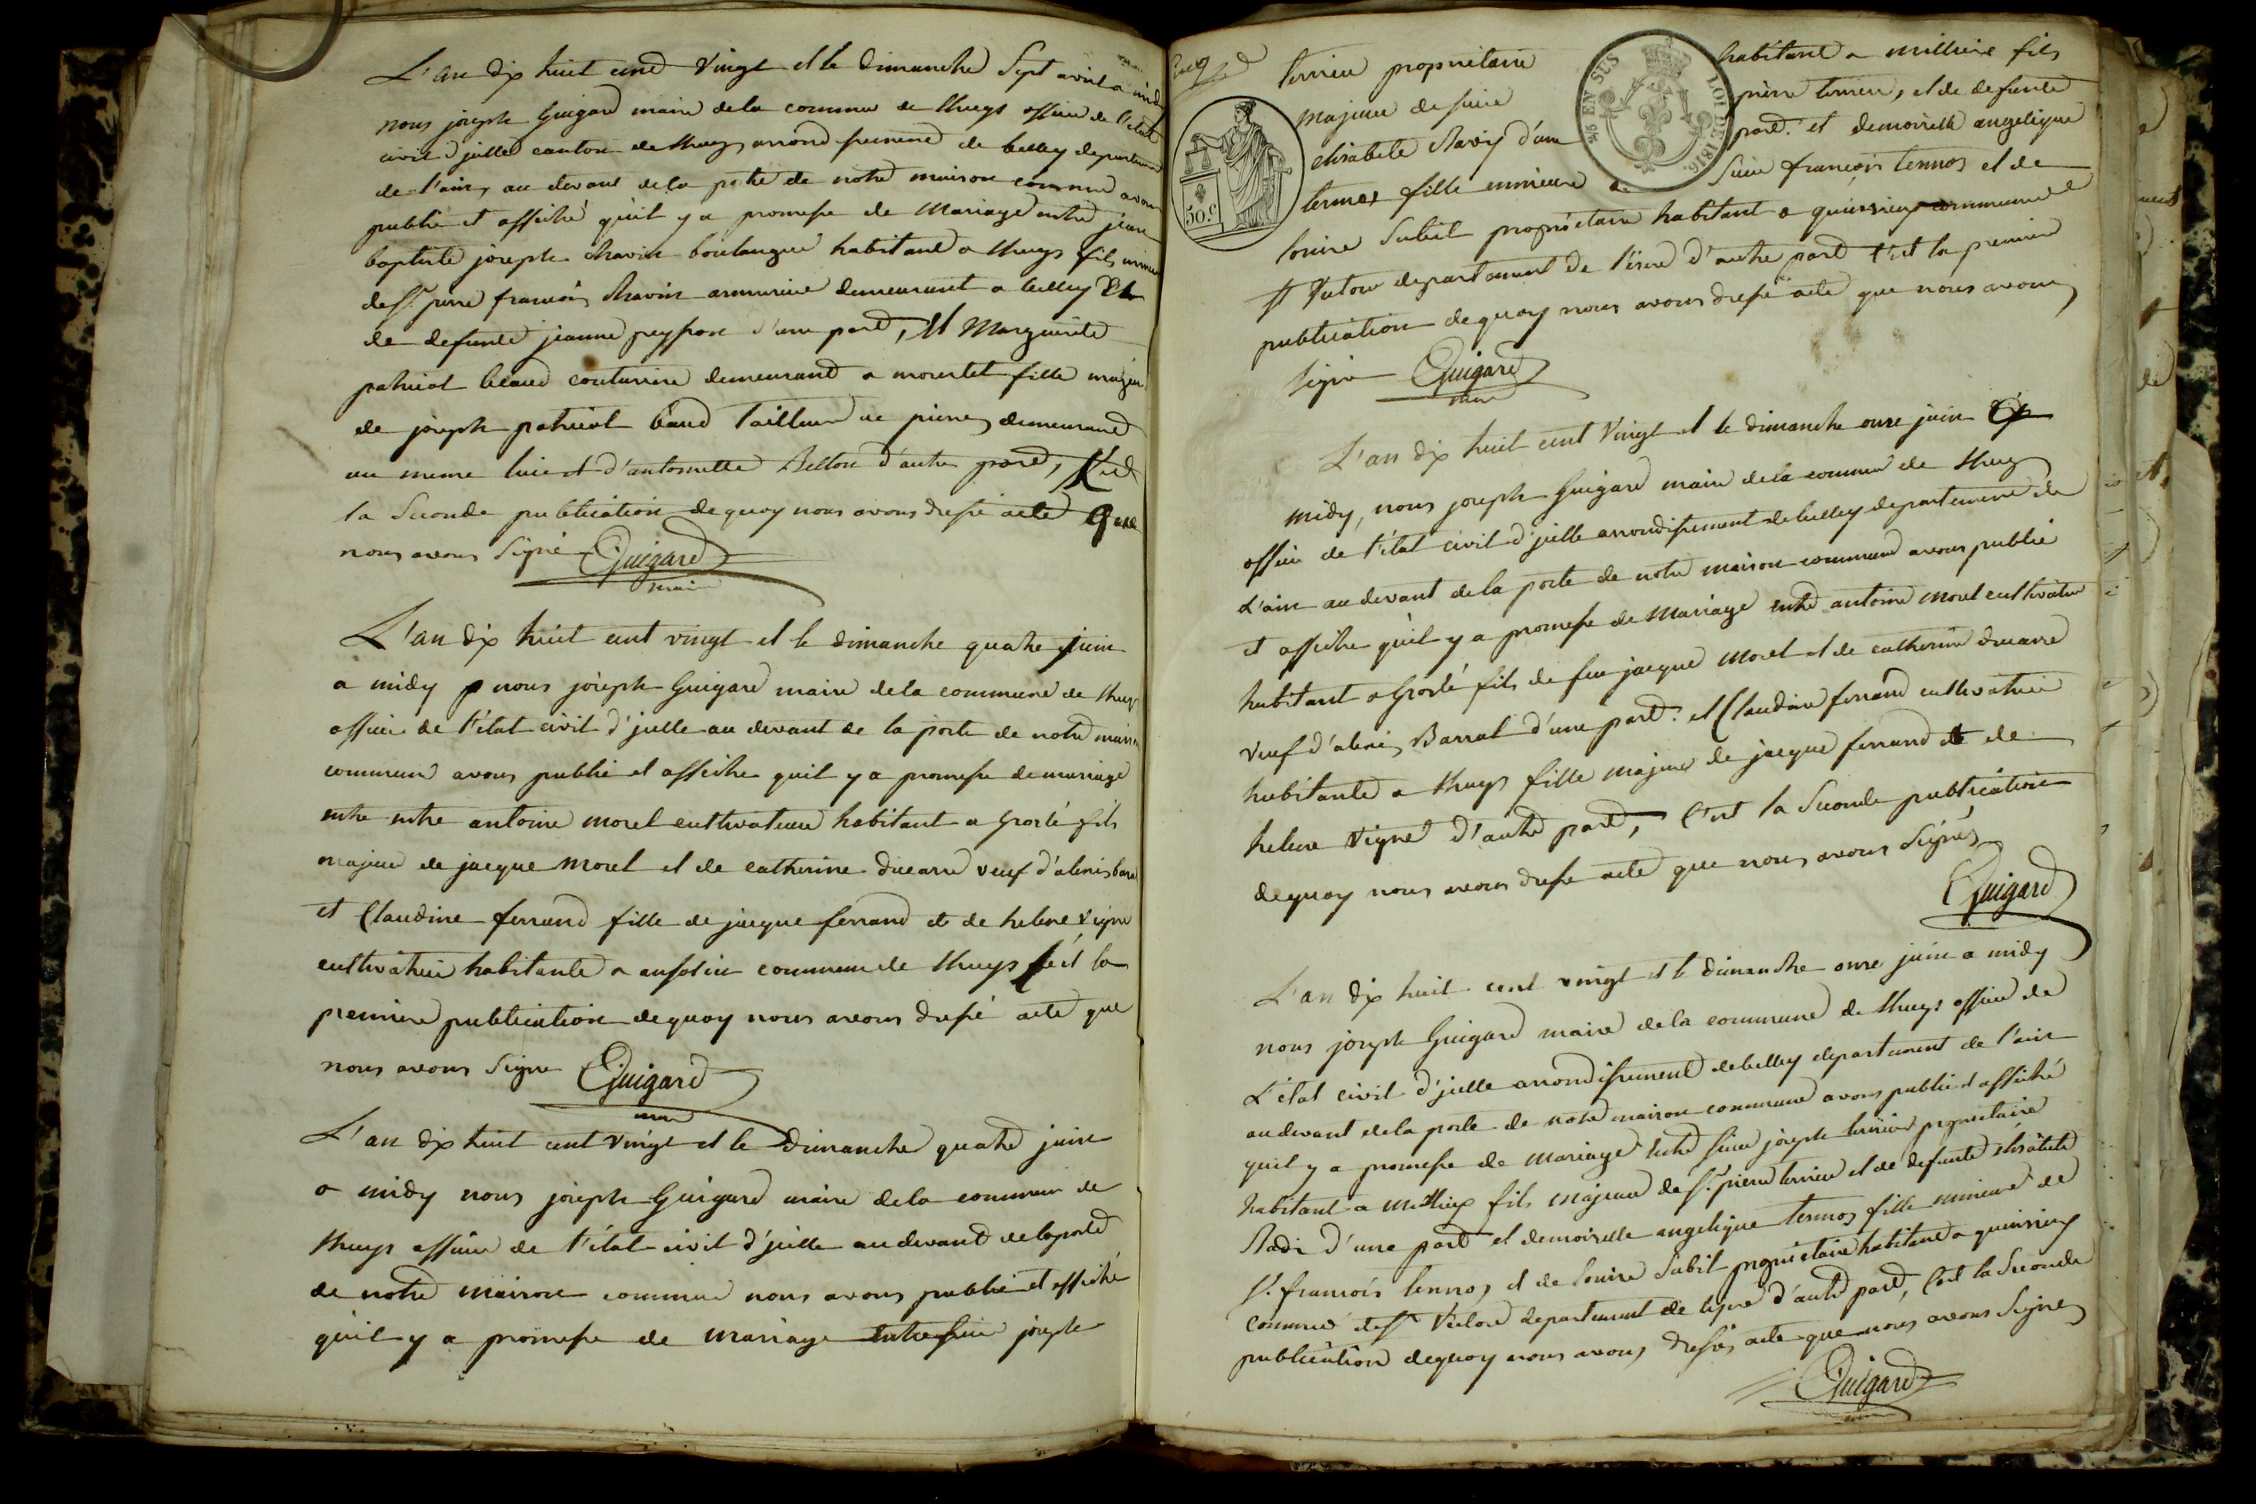 L'an dix huit cent Vingt et le dimanche Sept avril a midy
nous joseph Guigard maire de la commune de thuys officier de l'etat
civil d'jcelle canton de thuys arrondissement de belley departement
de l'ain, au devant de la porte de notre maison commune avons
publié et affiché qu'il y a promesse de Mariage entre jean
baptiste joseph chavin boulanger habitant a thuys fils mineur
de Sr. pierre francois Chavin armurier demeurant a belley Et
de defunte jeanne peysson d'une part, et Marguerite
patriot beaud couturiere demeurant a morestel fille majeure
de joseph patriot baud tailleur de pierres demeurand
au meme lieu et d'antoinette Belton d'autre part, C'est
la Seconde publication de quoy nous avons dressé acte que
nous avons Signé Guigard
maire
L'an dix huit cent vingt et le dimanche quatre juin
a midy nous joseph Guigard maire de la commune de thuys
officier de l'état civil d'jcelle au devant de la porte de notre maison
commune avons publié et affiche quil y a promesse de mariage
entre entre antoine morel cultivateur habitant a Groslé fils
majeur de jacque Morel et de catherine ducarre veuf d'alexis bara
et Claudine ferrand fille de jacque ferrand et de helene Vigne
cultivatrice habitante a commune de thuys c'est la
premiere publication de quoy nous avons dressé acte que
nous avons Signe Guigard
maire
L'an dix huit cent Vingt et le Dimanche quatre juin
a midy nous joseph Guigard maire de la commune de
thuys officier de l'état civil d'jcelle au devant de la porte
de notre maison commune nous avons publié et affiché
qu'il y a promesse de mariage entre sieur joseph
terrier propriétaire habitant a milliere fils
majeur de sieur pierre terrier, et de defunte
elisabete Ravy d'une part. et demoiselle angelique
termoz fille mineure de Sieur françois termoz et de
louise Subit propriétaire habitant a quirieu commune
St Victor departement de l'isere d'autre part C'est la premiere
publication de quoy nous avons dressé acte que nous avons
signé Guigard
maire
45 EN SUS
LOI DE 1816
50.c
L'an dix huit cent Vingt et le dimanche onze juin a
midy, nous joseph Guigard maire de la commune de thuys
officier de l'état civil d'jcelle arrondissement de belley departement de
L'ain au devant de la porte de notre maison commune avons publié
et affiche qu'il y a promesse de Mariage entre antoine morel cultivateur
habitant a Groslé fils de feu jacque Morel et de catherine ducarre
veuf d'alexis Barrat d'une part. et Claudine ferrand cultivatrice
habitante a thuys fille majeure de jacque ferrand et de
helene Vigne d'autre part, C'est la Seconde publication
de quoy nous avons dresse acte que nous avons Signés
Guigard
L'an dix huit cent vingt et le dimanche onze juin a midy
nous joseph Guigard maire de la commune de thuys officier de
L'état civil d'jcelle arrondissement de belley departement de l'ain
au devant de la porte de notre maison commune avons publié et affiché
quil y a promesse de mariage entre sieur joseph terrier propriétaire
habitant a fils majeur de Sr. pierre terrier et de defunte elisabete
Radi d'une part et demoiselle angelique termoz fille mineure de
Sr. francois termoz et de Louise Subit propriétaire habitant a quirieu
commune de St Victor departement de lisere d'autre part, C'est la Seconde
publication de quoy nous avons dressés acte que nous avons Signes
Guigard
maire